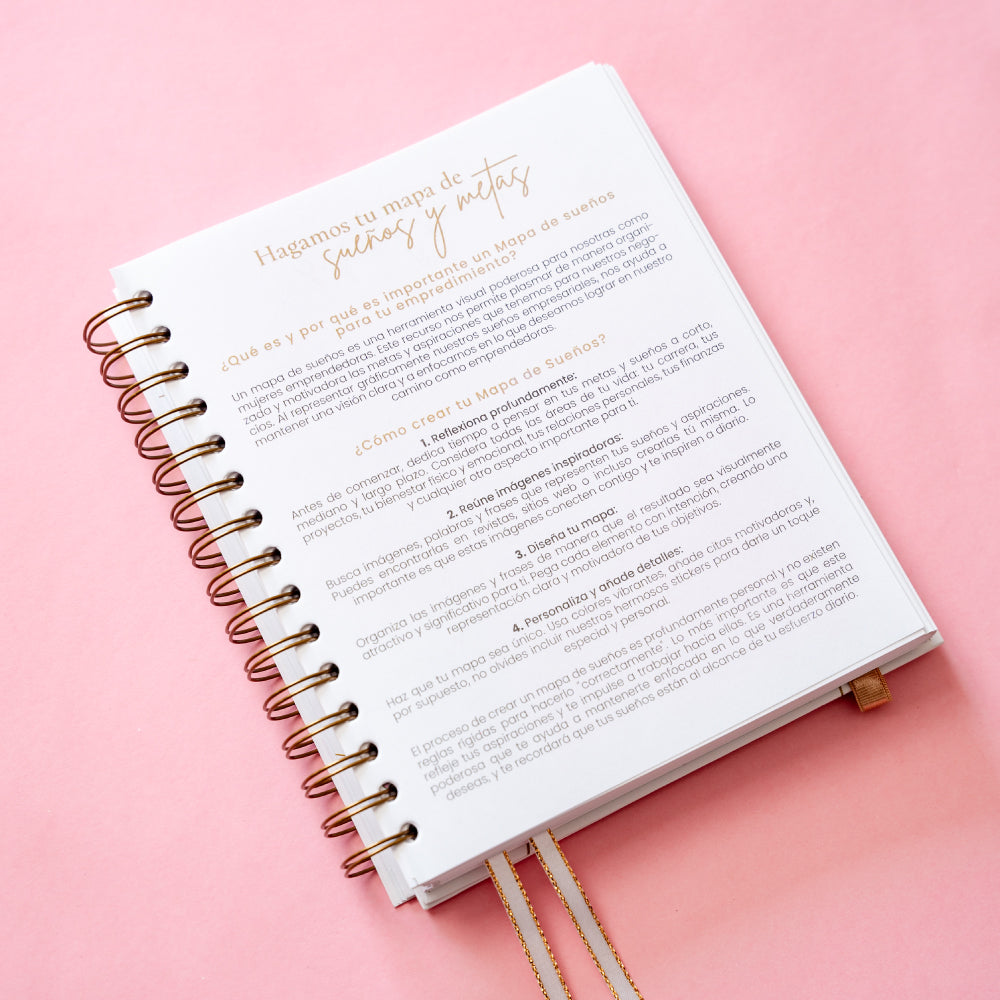 Hagamos tu mapa de
sueños y metas
¿Qué es y por qué es importante un Mapa de sueños
para tu empredimiento?
Un mapa de sueños es una herramienta visual poderosa para nosotras como
mujeres emprendedoras. Este recurso nos permite plasmar de manera organi-
zada y motivadora las metas y aspiraciones que tenemos para nuestros nego-
cios. Al representar gráficamente nuestros sueños empresariales, nos ayuda a
mantener una visión clara y a enfocarnos en lo que deseamos lograr en nuestro
camino como emprendedoras.
¿Cómo crear tu Mapa de Sueños?
1. Reflexiona profundamente:
Antes de comenzar, dedica tiempo a pensar en tus metas y sueños a corto,
mediano y largo plazo. Considera todas las áreas de tu vida: tu carrera, tus
proyectos, tu bienestar físico y emocional, tus relaciones personales, tus finanzas
y cualquier otro aspecto importante para ti.
2. Reúne imágenes inspiradoras:
Busca imágenes, palabras y frases que representen tus sueños y aspiraciones.
Puedes encontrarlas en revistas, sitios web o incluso crearlas tú misma. Lo
importante es que estas imágenes conecten contigo y te inspiren a diario.
3. Diseña tu mapa:
Organiza las imágenes y frases de manera que el resultado sea visualmente
atractivo y significativo para ti. Pega cada elemento con intención, creando una
representación clara y motivadora de tus objetivos.
4. Personaliza y añade detalles:
Haz que tu mapa sea único. Usa colores vibrantes, añade citas motivadoras y,
por supuesto, no olvides incluir nuestros hermosos stickers para darle un toque
especial y personal.
El proceso de crear un mapa de sueños es profundamente personal y no existen
reglas rígidas para hacerlo "correctamente". Lo más importante es que este
refleje tus aspiraciones y te impulse a trabajar hacia ellas. Es una herramienta
poderosa que te ayuda a mantenerte enfocada en lo que verdaderamente
deseas, y te recordará que tus sueños están al alcance de tu esfuerzo diario.